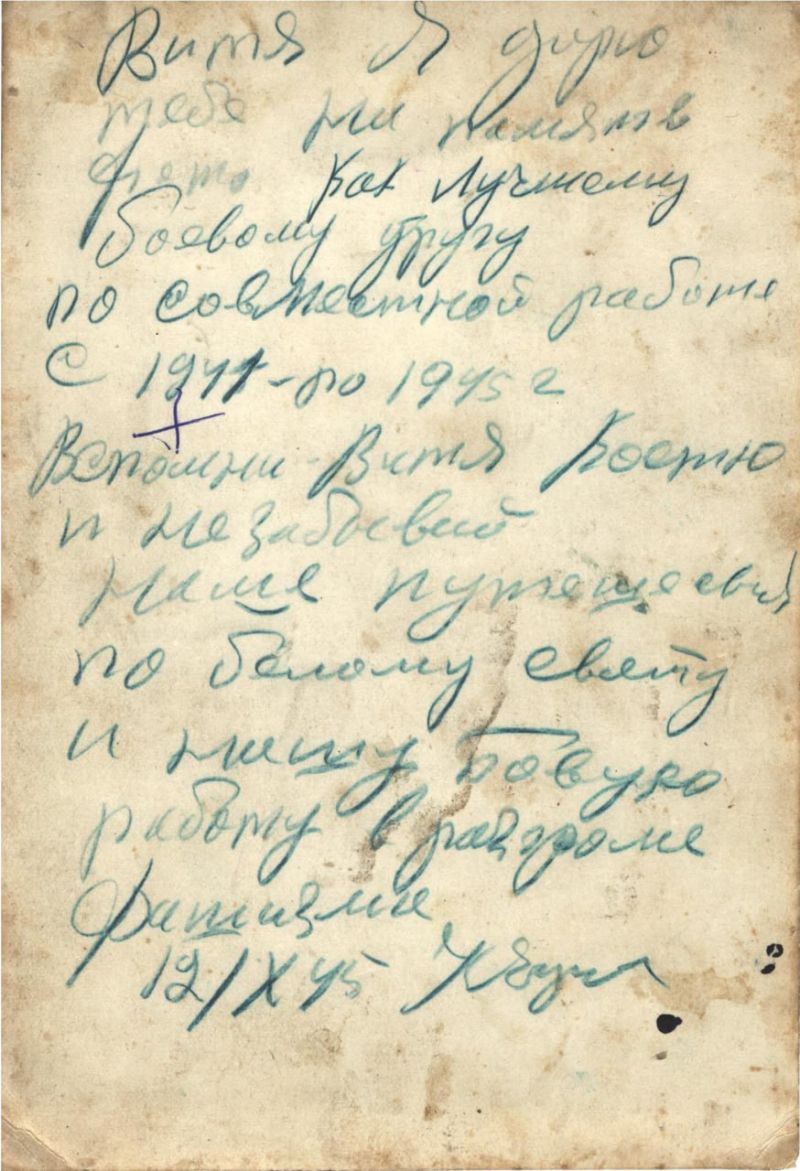 Витя я дарю
тебе на память
фото как лучшому
боевому другу
по совместной работе
с 1941-по 1945 г
Вспомни-Витя Костю
и незабоевай
наше путешесвия
по белому свету
и нашу боевую
работу в разгроме
фашизма
12/X 45